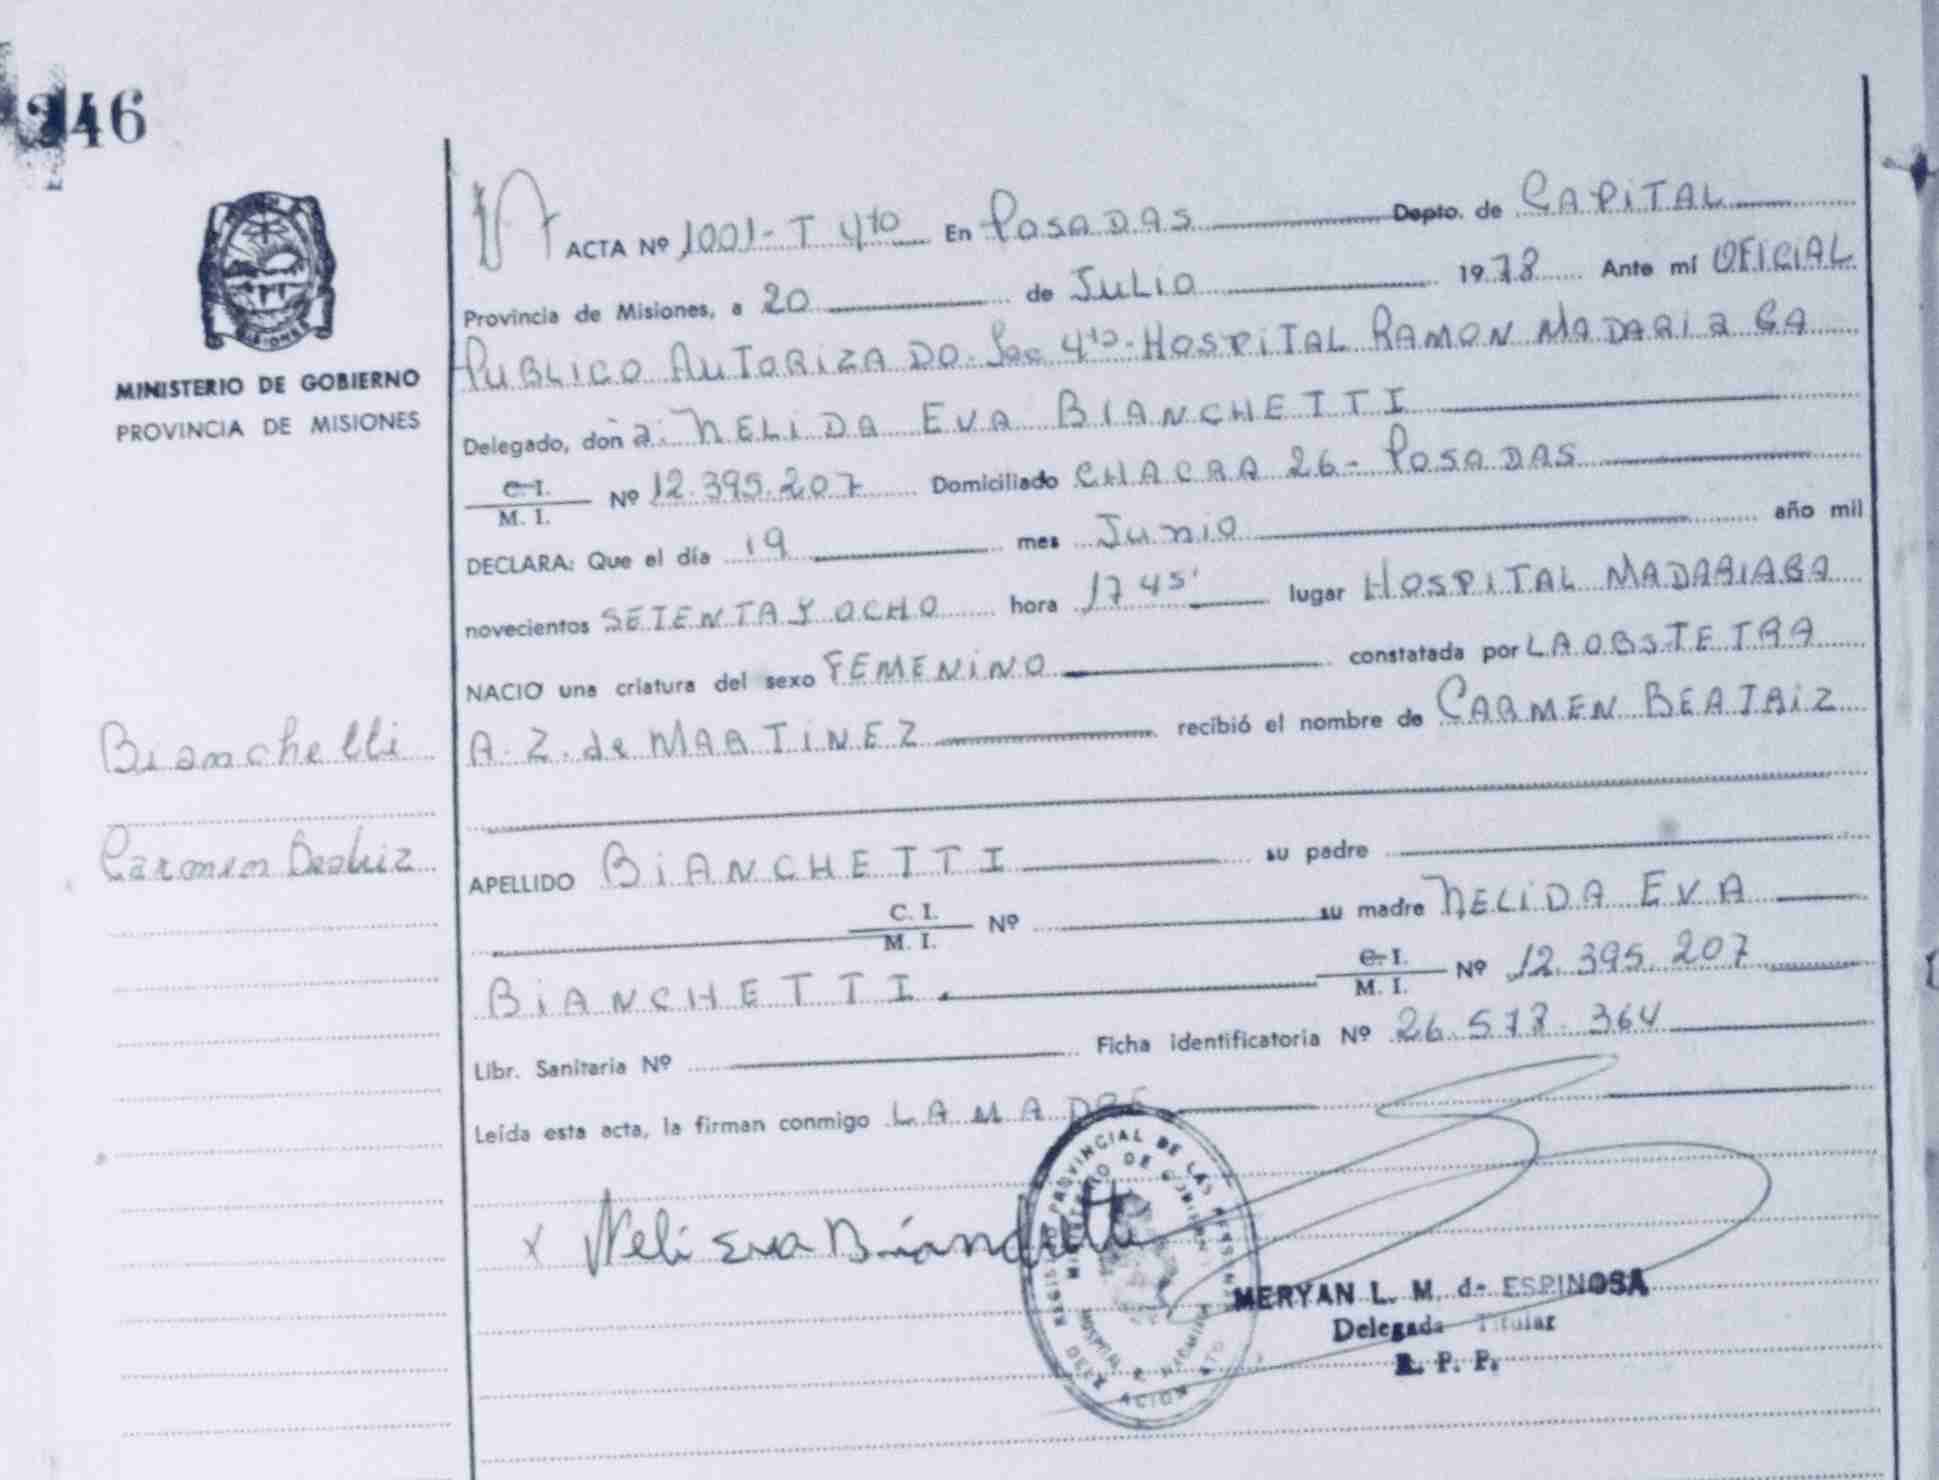 246
MINISTERIO DE GOBIERNO
PROVINCIA DE MISIONES
ACTA Nº 1001 - T 4to En POSADAS Depto. de CAPITAL
Provincia de Misiones, a 20 de JULIO 1978 Ante mí OFICIAL
PUBLICO AUTORIZADO. Sec 4to - HOSPITAL RAMON MADARIAGA
Delegado, doña: NELIDA EVA BIANCHETTI
C. I.
M. I. Nº 12.395.207 Domiciliado CHACRA 26 - POSADAS
DECLARA: Que el día 19 mes Junio año mil
novecientos SETENTA Y OCHO hora 17 45' lugar HOSPITAL MADARIAGA
NACIO una criatura del sexo FEMENINO constatada por LA OBSTETRA
A. Z. de MARTINEZ recibió el nombre de CARMEN BEATRIZ
Bianchetti
Carmen Beatriz
APELLIDO BIANCHETTI su padre
C. I.
M. I. Nº su madre NELIDA EVA
BIANCHETTI. C. I.
M. I. Nº 12.395.207
Libr. Sanitaria Nº Ficha identificatoria Nº 26.578.364
Leída esta acta, la firman conmigo LA MADRE
x Neli Eva Bianchetti
REGISTRO PROVINCIAL DE LAS PERSONAS
MINISTERIO DE GOBIERNO
HOSPITAL R. MADARIAGA
DELEGACION 4TO
MERYAN L. M. de ESPINOSA
Delegada Titular
R. P. P.